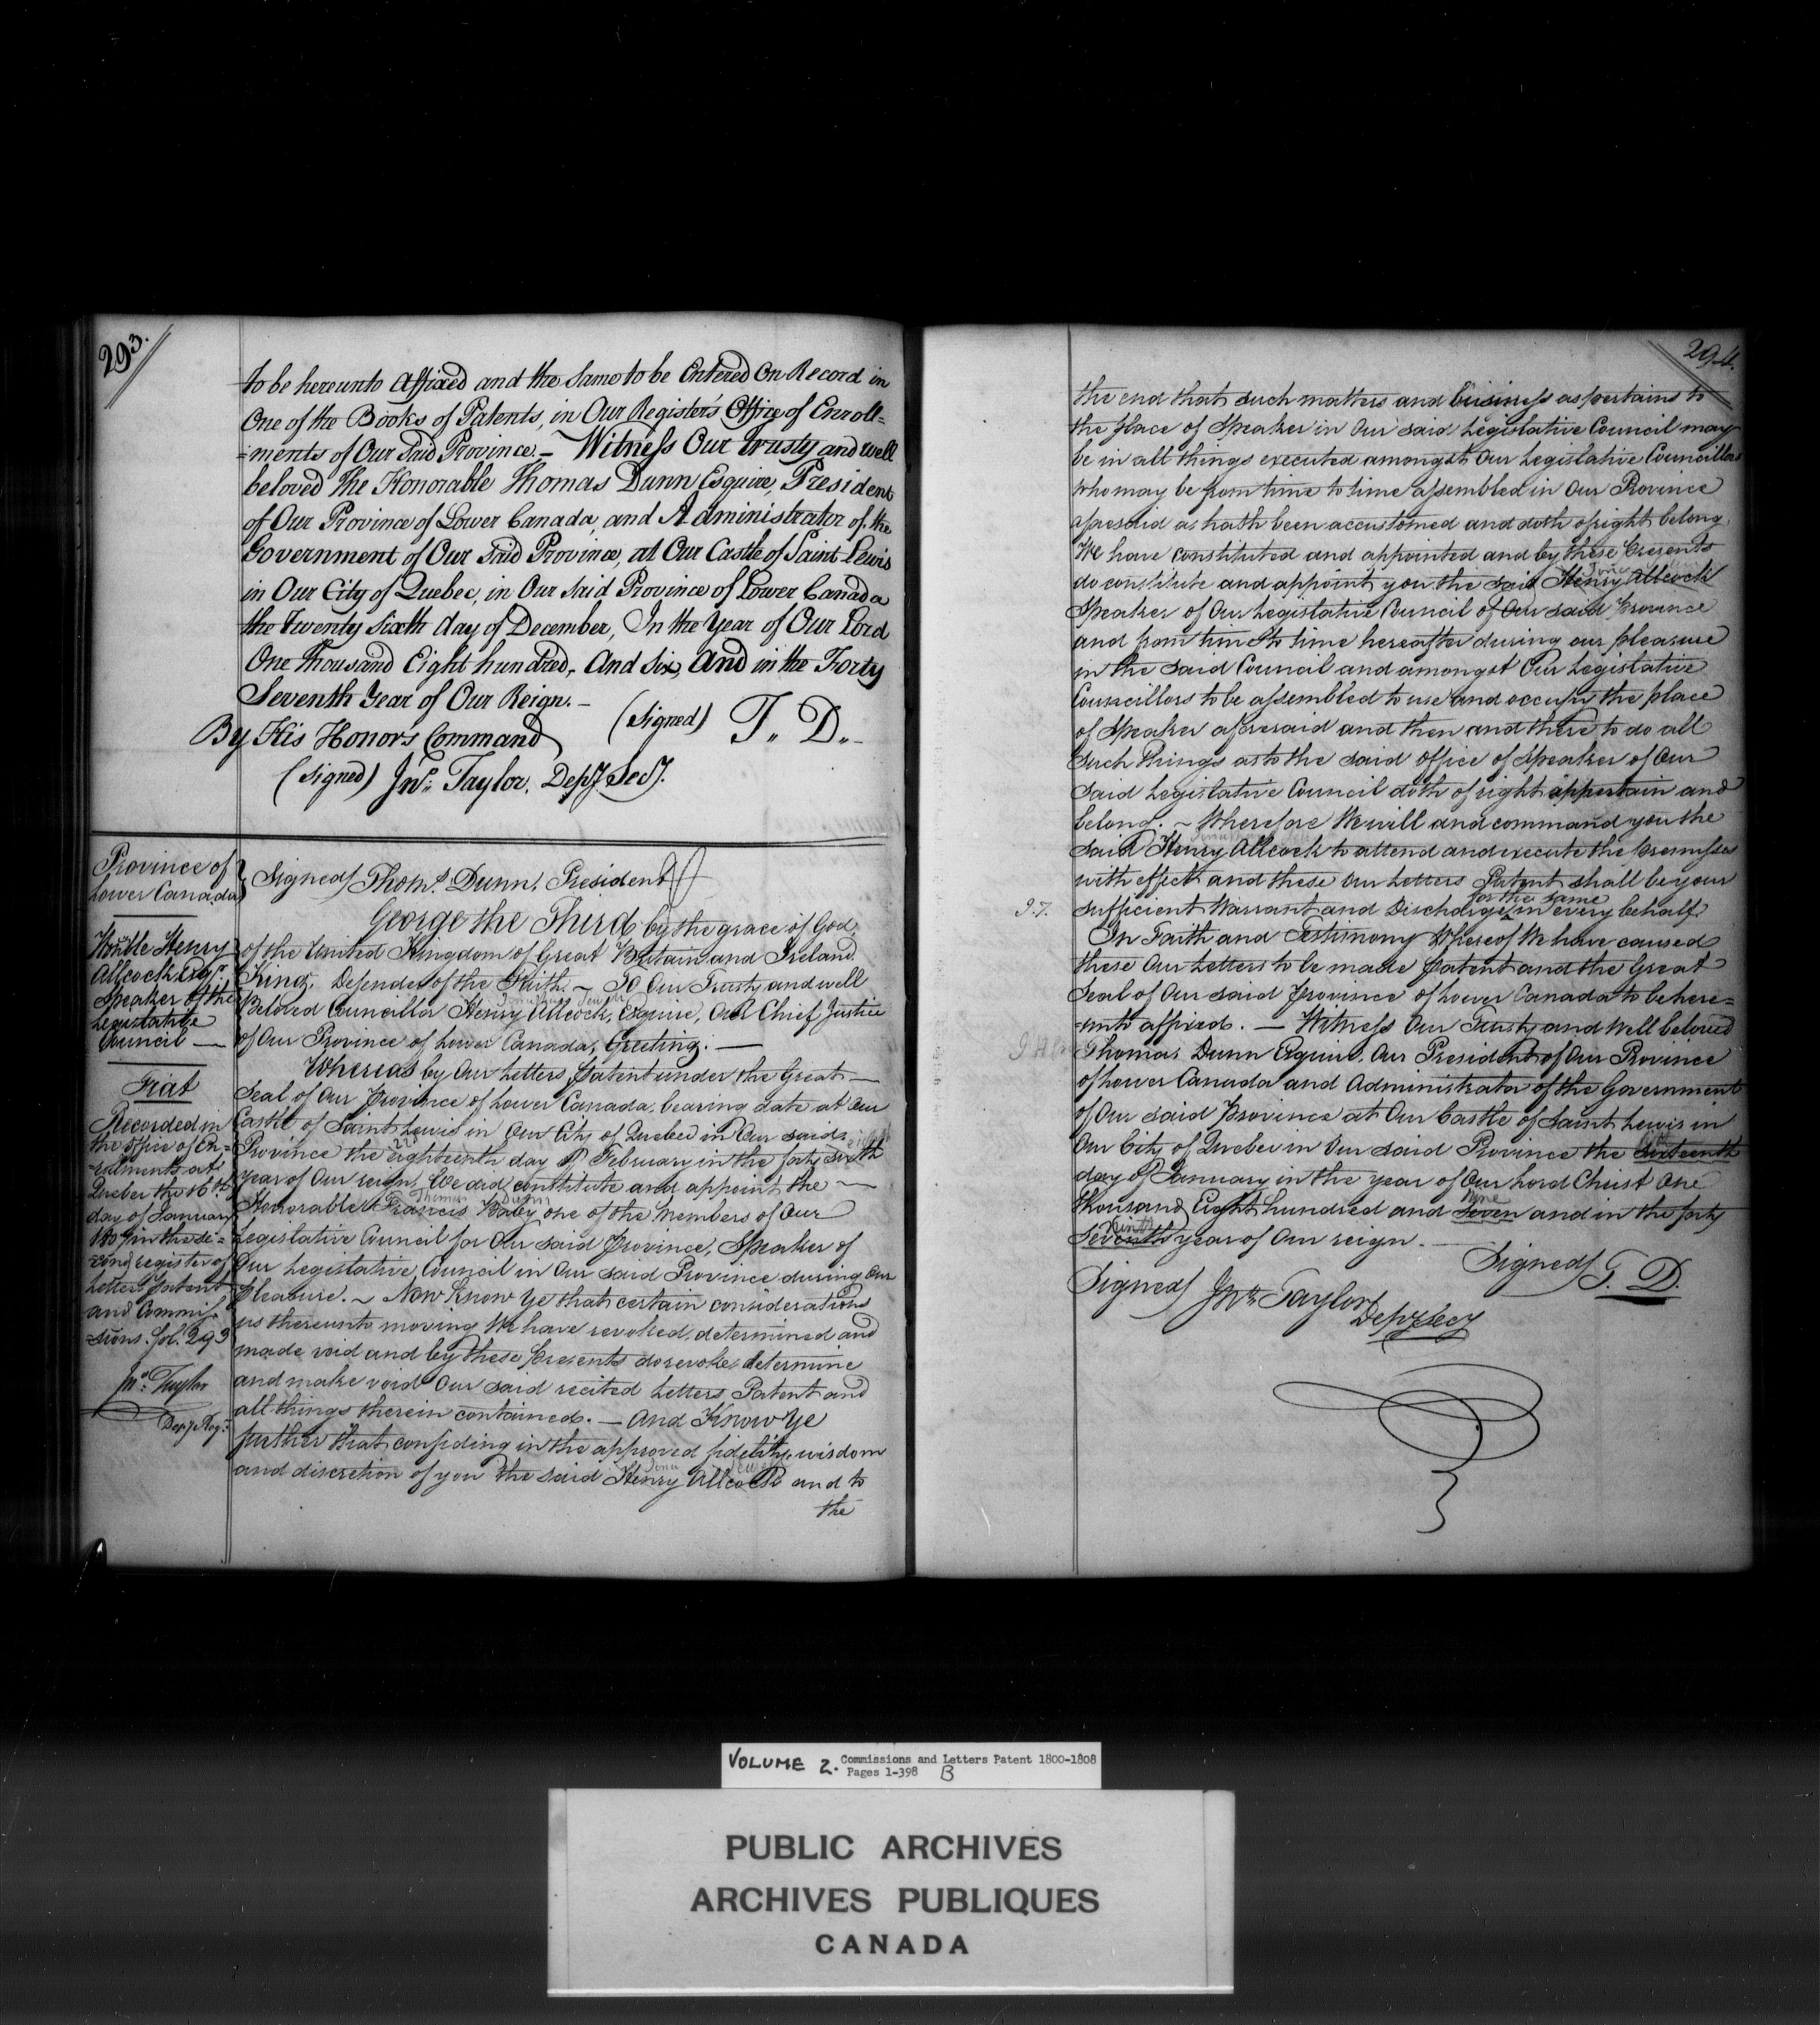 293.
to be hereunto affixed and the same to be Entered On Record in
One of the Books of Patents, in Our Register's Office of Enroll=
=ments of Our Said Province. – Witness Our trusty and well
beloved The Honorable Thomas Dunn Esquire, President
of Our Province of Lower Canada, and Administrator of the
Government of Our Said Province, at Our Castle of Saint Lewis
in Our City of Quebec, in Our said Province of Lower Canada
the Twenty Sixth day of December, In the Year of Our Lord
One thousand Eight hundred, And Six, and in the Forty
Seventh Year of Our Reign. –
(signed) T,, D,,
By His Honors Command
(signed) Jno. Taylor, Depy. Secy.
Province of
Lower Canada
Honble Henry
Allcock Esqr.
Speaker of the
Legislative
Council —
Fiat
Recorded in
the office of En=
=rolments at
Quebec the 16th
day of January
1807 in the se=
=cond register of
Letters patent
and Commis=
=sions. fol. 293
Jno. Taylor
Depy. Regr.
Signed Thoms. Dunn. President
George the Third by the grace of God
of the United Kingdom of Great Britain and Ireland
King, Defender of the Faith. ~ To Our Trusty and well
Jonathan Sewell
Beloved Councillor Henry Allcock, Esquire, Our Chief Justice
of Our Province of Lower Canada, Greeting. —
Whereas by Our Letters patent under the Great —
Seal of Our Province of Lower Canada, bearing date at Our
Castle of Saint Lewis in Our City of Quebec in Our said
22 eight
Province the eighteenth day of February in the forty sixth
year of Our reign, We did constitute and appoint the —
Thomas Dunn
Honorable Francis Baby one of the members of Our
Legislative Council for Our said Province, Speaker of
Our Legislative Council in Our said Province during Our
pleasure. ~ Now Know Ye that certain considerations
us thereunto moving We have revoked, determined and
made void and by these presents do revoke, determine
and make void Our said recited Letters Patent and
all things therein contained. — And Know Ye
further that confiding in the approved fidelity, wisdom
Jona Sewell
and discretion of you the said Henry Allcock and to
the
294.
the end that such matters and business as pertains to
the place of Speaker in Our said Legislative Council may
be in all things executed amongst Our Legislative Councillors
who may be from time to time assembled in Our Province
aforesaid as hath been accustomed and doth of right belong,
We have constituted and appointed and by these Presents
Jona
do constitute and appoint you the said Henry Allcock
Speaker of Our Legislative Council of Our said Province
and from time to time hereafter during our pleasure
in the said Council and amongst Our Legislative
Councillors to be assembled to use and occupy the place
of Speaker aforesaid and then and there to do all
such Things as to the said office of Speaker of Our
said Legislative Council doth of right appertain and
belong. ~ Wherefore We will and command you the
said Henry Allcock to attend and execute the premisses
with effect and these Our Letters Patent shall be your
for the same
J.T. sufficient Warrant and Discharge in every behalf.
In Faith and Testimony Whereof We have caused
these Our Letters to be made Patent and the Great
Seal of Our said Province of Lower Canada to be here=
=unto affixed. — Witness Our Trusty and Well beloved
Thomas Dunn Esquire, Our President of Our Province
of Lower Canada and Administrator of the Government
of Our said Province at Our Castle of Saint Lewis in
Our City of Quebec in Our said Province the sixteenth
day of January in the year of Our Lord Christ One
Nine
thousand Eight hundred and Seven and in the forty
Ninth
Seventh year of Our reign. —
Signed T. D.
Signed Jno. Taylor
Depy Secy
VOLUME 2. Commissions and Letters Patent 1800-1808
Pages 1-398 B
PUBLIC ARCHIVES
ARCHIVES PUBLIQUES
CANADA